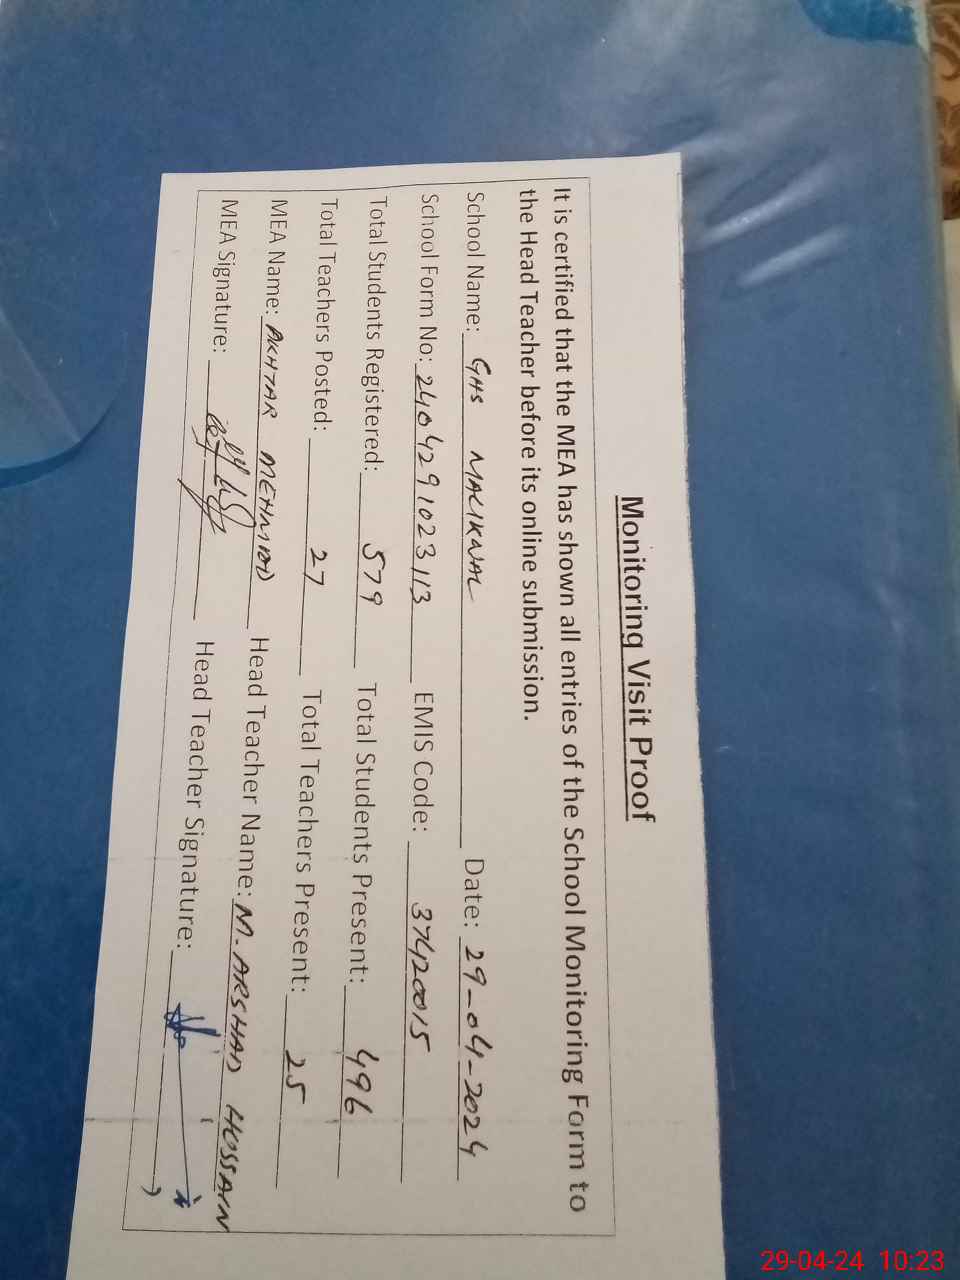 Monitoring Visit Proof
It is certified that the MEA has shown all entries of the School Monitoring Form to
the Head Teacher before its online submission.
School Name: GHS MALIKWAL Date: 29-04-2024
School Form No: 2404291023113 EMIS Code: 37420015
Total Students Registered: 579 Total Students Present: 496
Total Teachers Posted: 27 Total Teachers Present: 25
MEA Name: AKHTAR MEHMOOD Head Teacher Name: M. ARSHAD HUSSAIN
MEA Signature: Head Teacher Signature:
29-04-24 10:23